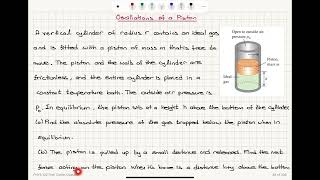 Oscillations of a Piston
A vertical cylinder of radius r contains an ideal gas
and is fitted with a piston of mass m that's free to
move. The piston and the walls of the cylinder are
frictionless, and the entire cylinder is placed in a
constant temperature bath. The outside air pressure is
P₀. In equilibrium, the piston sits at a height h above the bottom of the cylinder.
(a) Find the absolute pressure of the gas trapped below the piston when in
equilibrium.
(b) The piston is pulled up by a small distance and released. Find the net
force acting on the piston when its base is a distance h+y above the bottom
Open to outside air
pressure p₀
Piston,
mass m
Ideal
gas